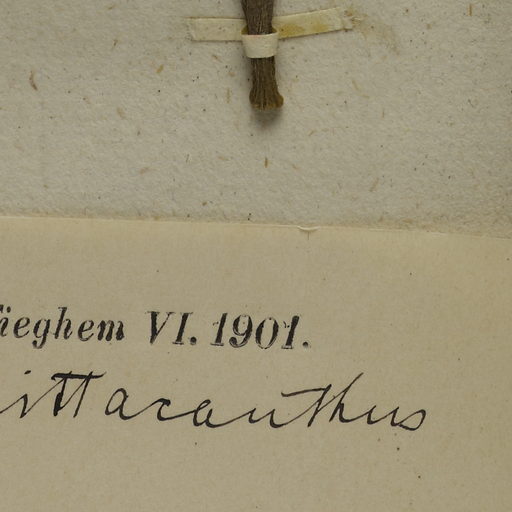 ieghem VI. 1901.
ittacanthus